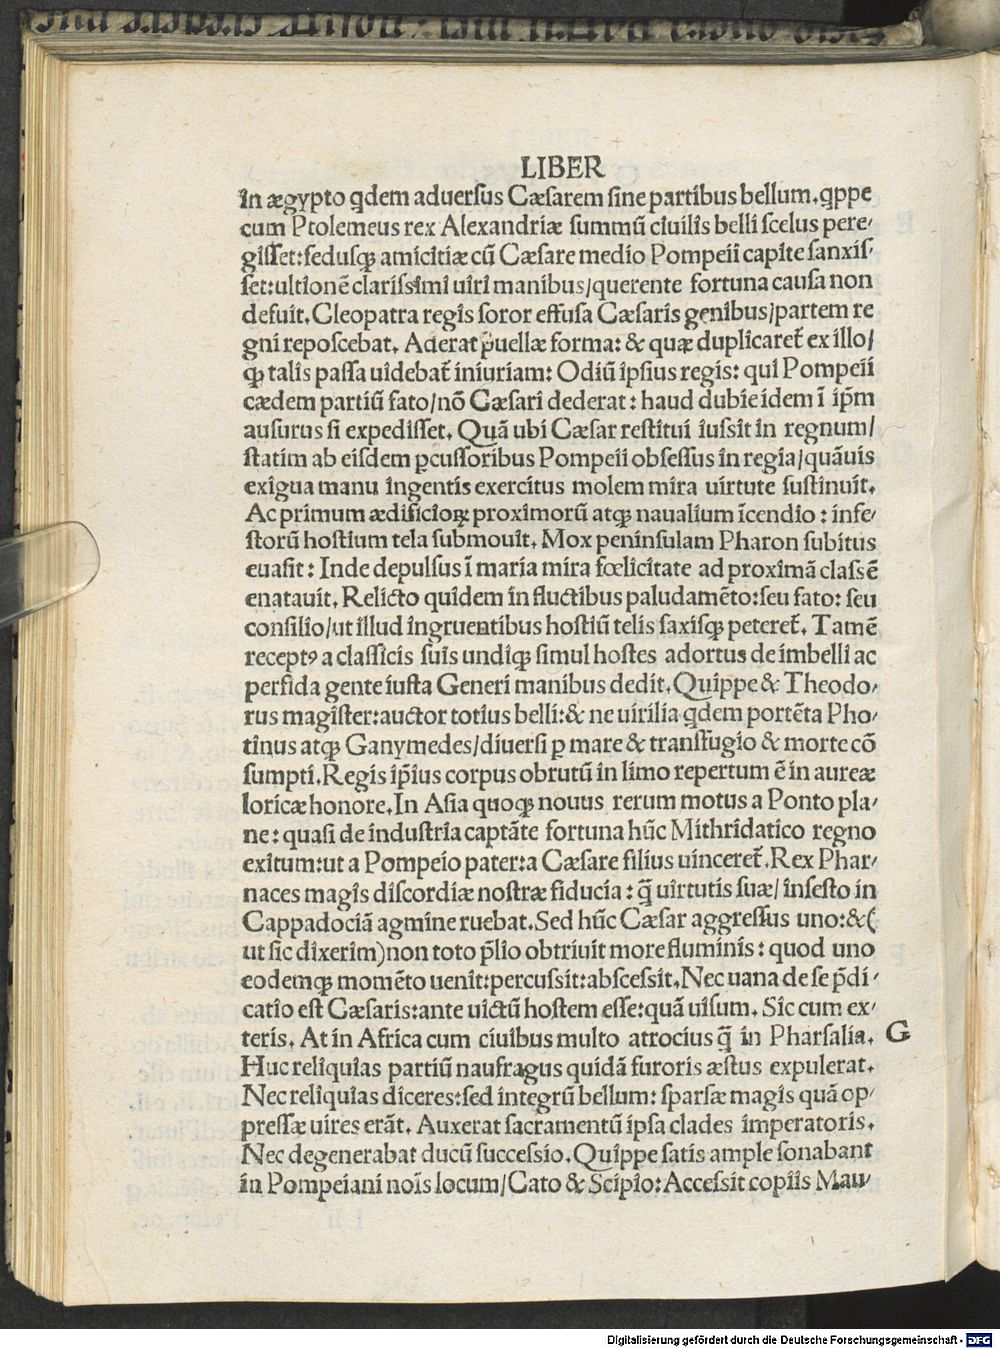 LIBER
In ægypto q̇dem aduersus Cæsarem sine partibus bellum. q̇ppe
cum Ptolemeus rex Alexandriæ summũ ciuilis belli scelus pere⸗
gisset: fedusqꝫ amicitiæ cũ Cæsare medio Pompeii capite sanxis⸗
set: ultionẽ clarissimi uiri manibus/querente fortuna causa non
defuit. Cleopatra regis soror effusa Cæsaris genibus/partem re
gni reposcebat. Aderat puellæ forma: & quæ duplicaret̃ ex illo/
qꝫ talis passa uidebat̃ iniuriam: Odiũ ipsius regis: qui Pompeii
cædem partiũ fato/nõ Cæsari dederat: haud dubie idem ĩ ip̃m
ausurus si expedisset. Quã ubi Cæsar restitui iussit in regnum/
statim ab eisdem ꝑcussoribus Pompeii obsessus in regia/quãuis
exigua manu ingentis exercitus molem mira uirtute sustinuit.
Ac primum ædificioꝝ proximorũ atqꝫ naualium ĩcendio: infe⸗
storũ hostium tela submouit. Mox peninsulam Pharon subitus
euasit: Inde depulsus ĩ maria mira fœlicitate ad proximã classẽ
enatauit. Relicto quidem in fluctibus paludamẽto: seu fato: seu
consilio/ut illud ingruentibus hostiũ telis saxisqꝫ peteret̃. Tamẽ
receptꝰ a classicis suis undiqꝫ simul hostes adortus de imbelli ac
perfida gente iusta Generi manibus dedit. Quippe & Theodo⸗
rus magister: auctor totius belli: & ne uirilia q̇dem portẽta Pho⸗
tinus atqꝫ Ganymedes/diuersi ꝑ mare & transfugio & morte cõ
sumpti. Regis ip̃ius corpus obrutũ in limo repertum ẽ in aureæ
loricæ honore. In Asia quoqꝫ nouus rerum motus a Ponto pla⸗
ne: quasi de industria captãte fortuna hũc Mithridatico regno
exitum: ut a Pompeio pater: a Cæsare filius uinceret̃. Rex Phar⸗
naces magis discordiæ nostræ fiducia: q̃ uirtutis suæ/ infesto in
Cappadociã agmine ruebat. Sed hũc Cæsar aggressus uno: & (
ut sic dixerim) non toto p̃lio obtriuit more fluminis: quod uno
eodemqꝫ momẽto uenit: percussit: abscessit. Nec uana de se p̃di⸗
catio est Cæsaris: ante uictũ hostem esse: quã uisum. Sic cum ex⸗
teris. At in Africa cum ciuibus multo atrocius q̃ in Pharsalia. G
Huc reliquias partiũ naufragus quidã furoris æstus expulerat.
Nec reliquias diceres: sed integrũ bellum: sparsæ magis quã op⸗
pressæ uires erãt. Auxerat sacramentũ ipsa clades imperatoris.
Nec degenerabat ducũ successio. Quippe satis ample sonabant
in Pompeiani nois̃ locum/Cato & Scipio: Accessit copiis Mau⸗
Digitalisierung gefördert durch die Deutsche Forschungsgemeinschaft - DFG